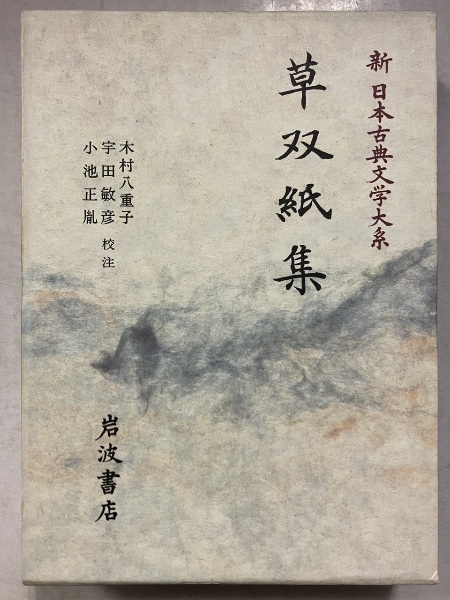 新 日本古典文学大系
草双紙集
木村八重子
宇田敏彦 校注
小池正胤
岩波書店